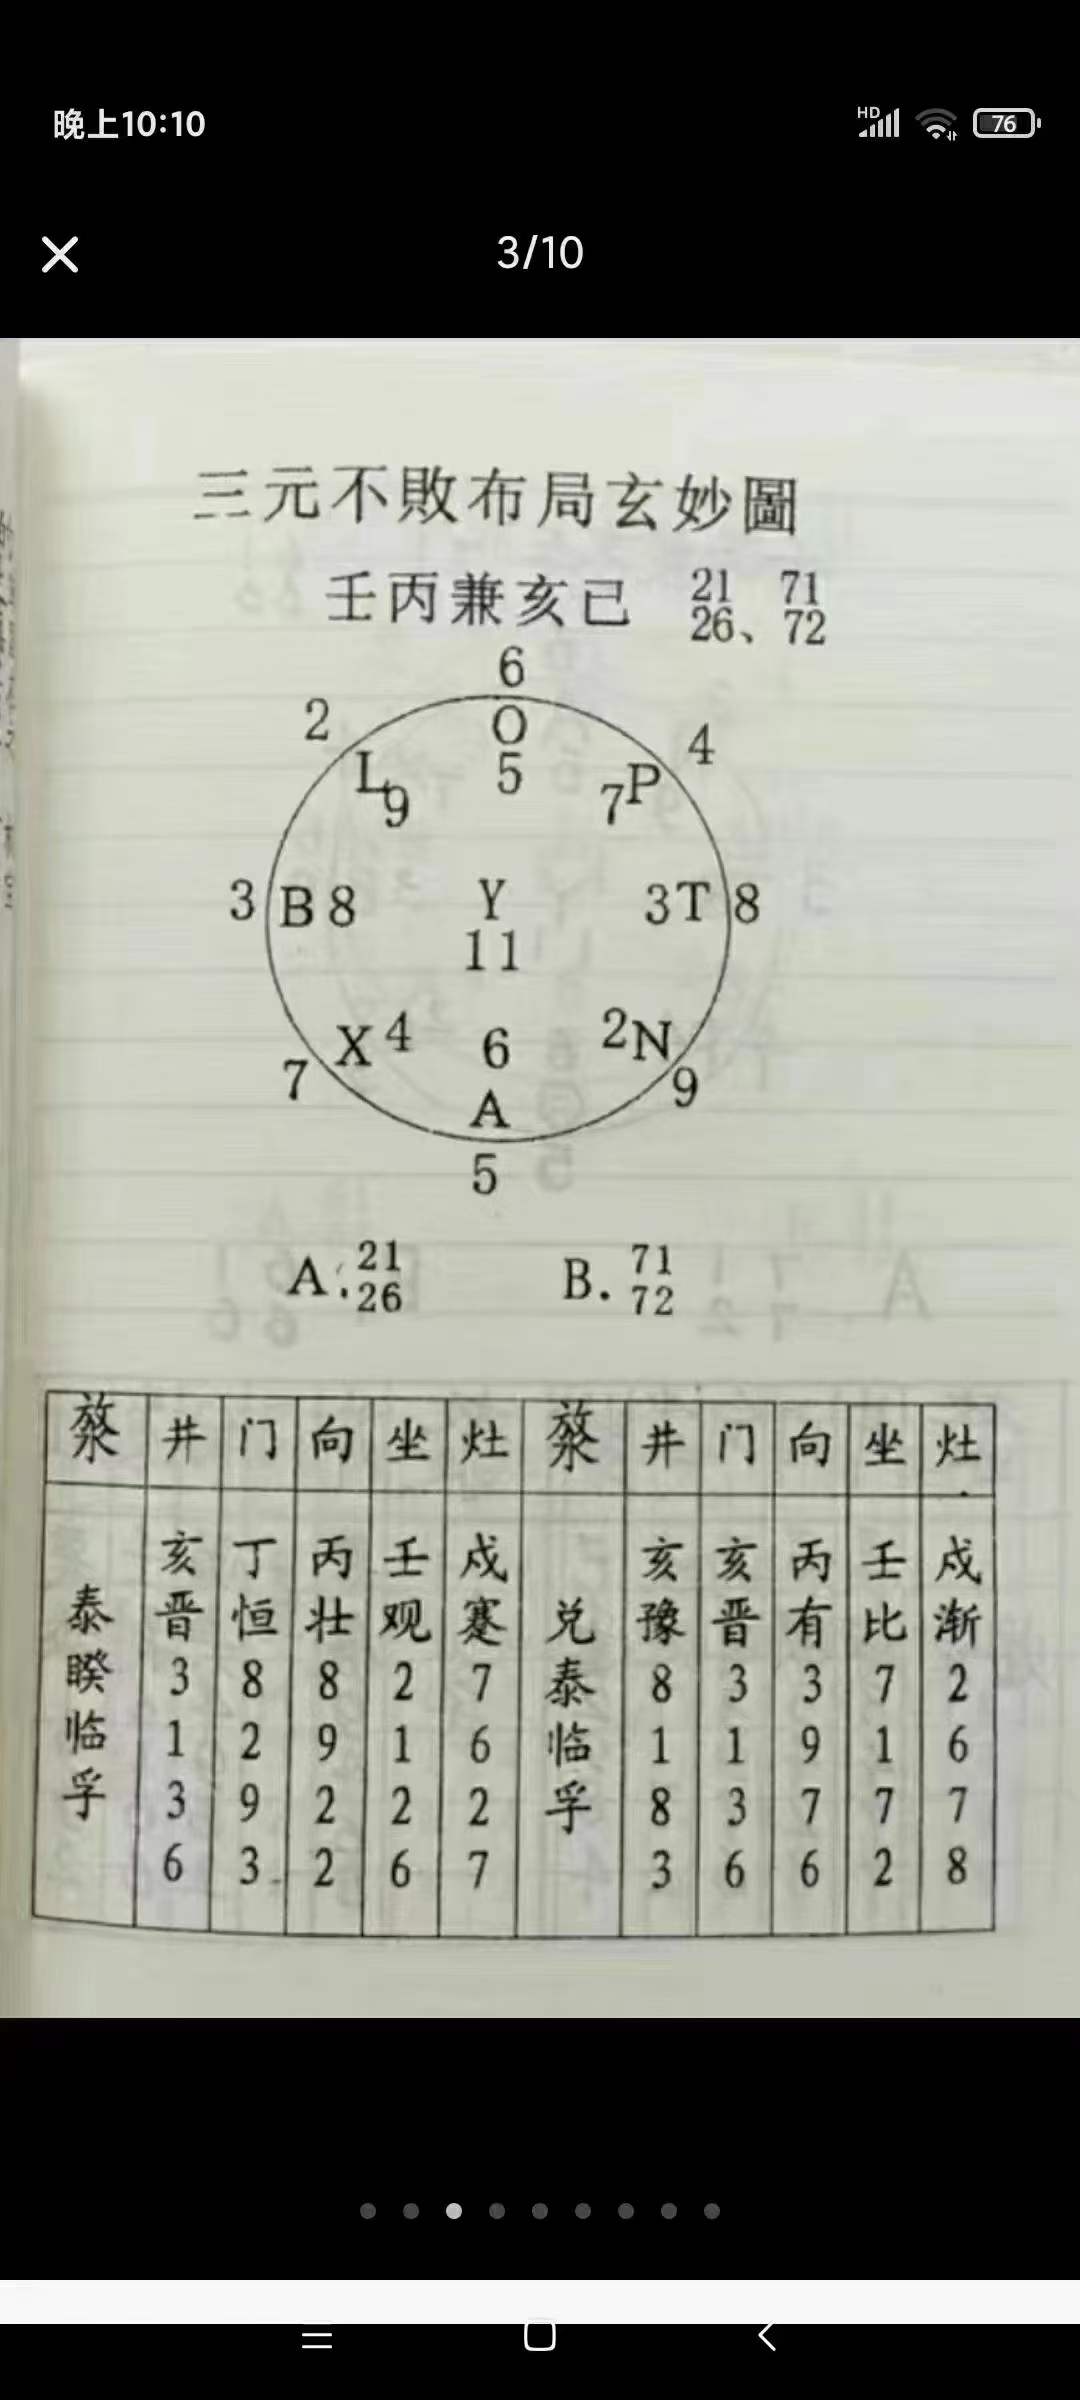 晚上10:10 HD 76
3/10
三元不敗布局玄妙圖
壬丙兼亥己 21 71
26、72
6
2 O 4
L 5 P
9 7
3 B 8 Y 3 T 8
11
X 4 6 2 N
7 A 9
5
A. 21 B. 71
26 72
井 门 向 坐 灶 井 门 向 坐 灶
亥 丁 丙 壬 戍 亥 亥 丙 壬 戍
泰 晋 恒 壮 观 蹇 兑 豫 晋 有 比 渐
睽 3 8 8 2 7 泰 8 3 3 7 2
临 1 2 9 1 6 临 1 1 9 1 6
孚 3 9 2 2 2 孚 8 3 7 7 7
6 3 2 6 7 3 6 6 2 8